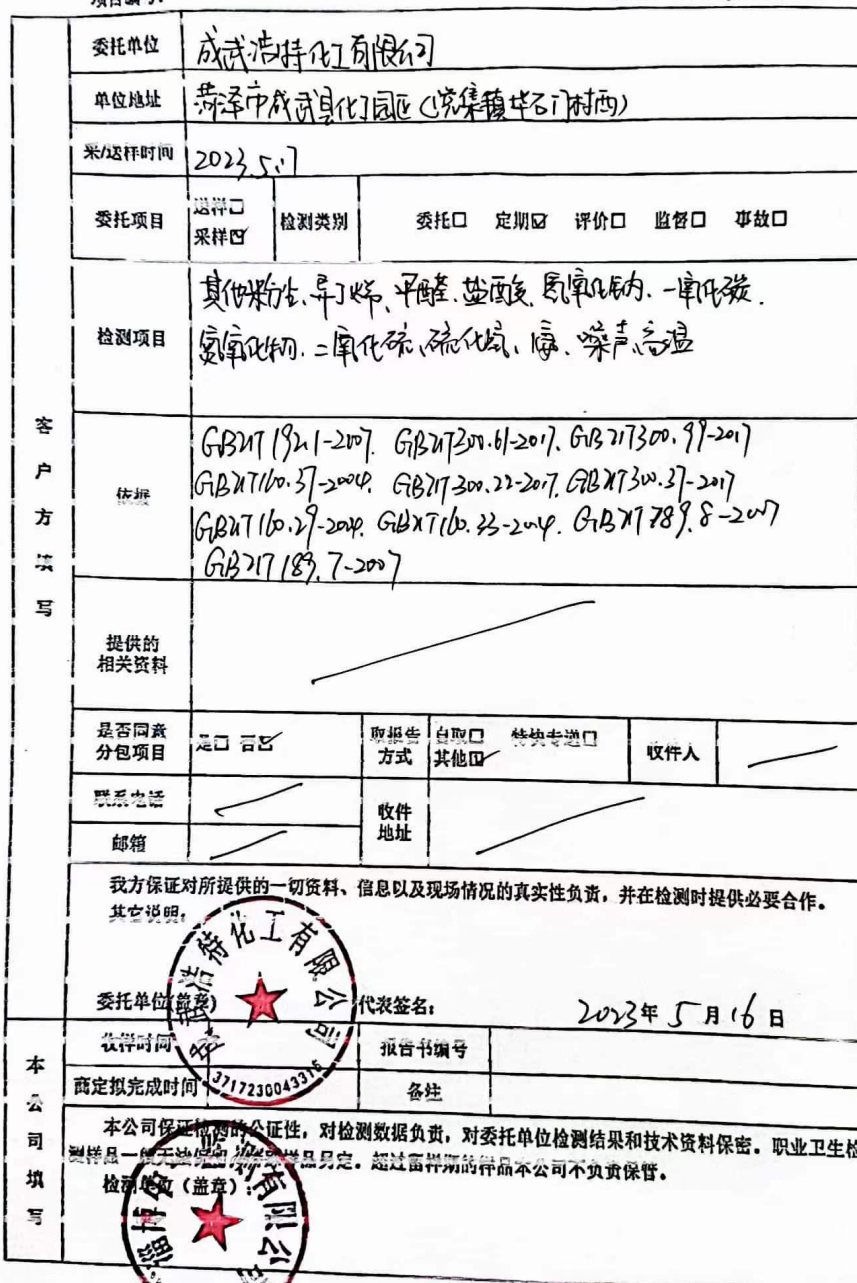 项目编号:
委托单位 成武浩特化工有限公司
单位地址 菏泽市成武县化工园区(党集镇华石门村西)
采/送样时间 2023.5.17
委托项目 送样□ 采样☑ 检测类别 委托□ 定期☑ 评价□ 监督□ 事故□
检测项目
其他粉尘、异丁烯、甲醛、盐酸、氢氧化钠、一氧化碳、
氮氧化物、二氧化硫、硫化氢、噪声、高温
客户方填写
依据
GBZ/T192.1-2007. GBZ/T300.61-2017. GBZ/T300.99-2017
GBZ/T160.37-2004. GBZ/T300.22-2017. GBZ/T300.37-2017
GBZ/T160.29-2004. GBZ/T160.33-2004. GBZ/T789.8-2007
GBZ/T189.7-2007
提供的
相关资料
是否同意
分包项目 是□ 否☑ 取报告
方式 自取□ 特快专递□
其他☑ 收件人
联系电话 收件
地址
邮箱
我方保证对所提供的一切资料、信息以及现场情况的真实性负责,并在检测时提供必要合作。
其它说明:
成武浩特化工有限公司
委托单位(盖章) 代表签名: 2023年5月16日
3717230043316
本公司填写
收样时间 报告书编号
商定拟完成时间 备注
本公司保证检测的公证性,对检测数据负责,对委托单位检测结果和技术资料保密。职业卫生检
测样品一般无法保留,样品另定。超过留样期的样品本公司不负责保管。
检测单位(盖章):
淄博 检测有限公司